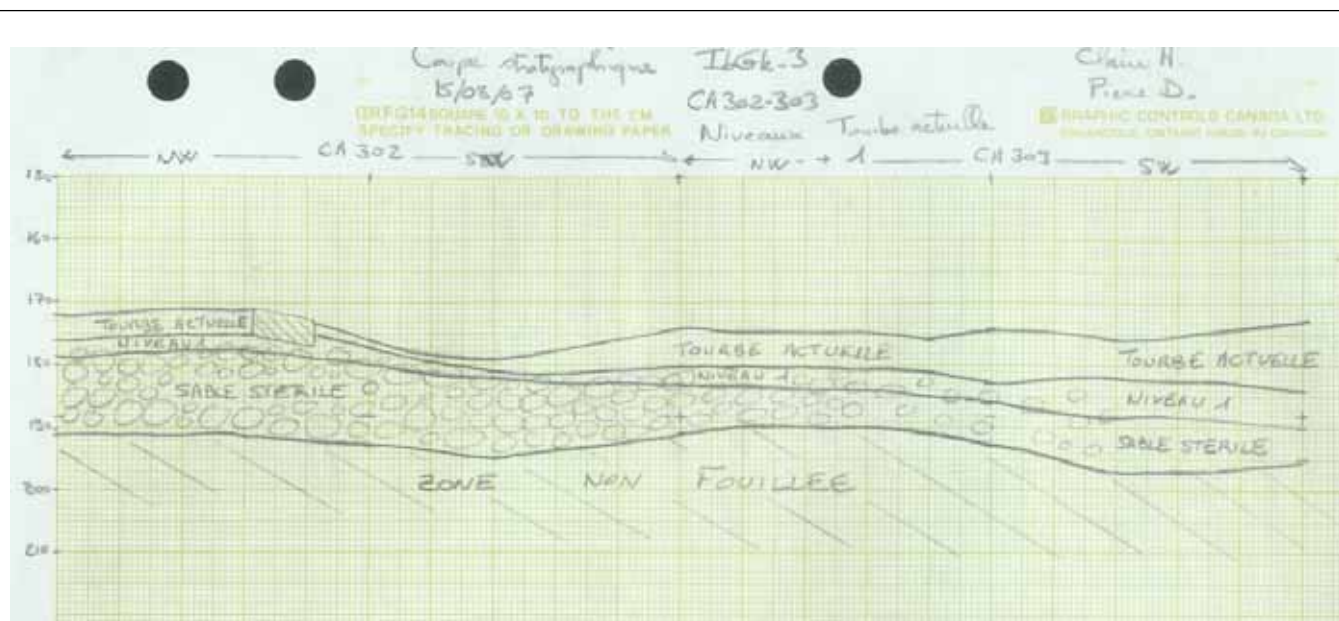 Coupe stratigraphique
15/08/07
IbGk-3
CA302-303
Niveaux Tourbe actuelle
Pierre D.
SQUARE 10 X 10 TO THE CM
SPECIFY TRACING OR DRAWING PAPER
GRAPHIC CONTROLS CANADA LTD
NW CA 302 NW → 1 CA 303 SW
170
TOURBE ACTUELLE
NIVEAU 1
SABLE STERILE
TOURBE ACTUELLE
NIVEAU 1
TOURBE ACTUELLE
NIVEAU 1
SABLE STERILE
ZONE NON FOUILLEE
200
210